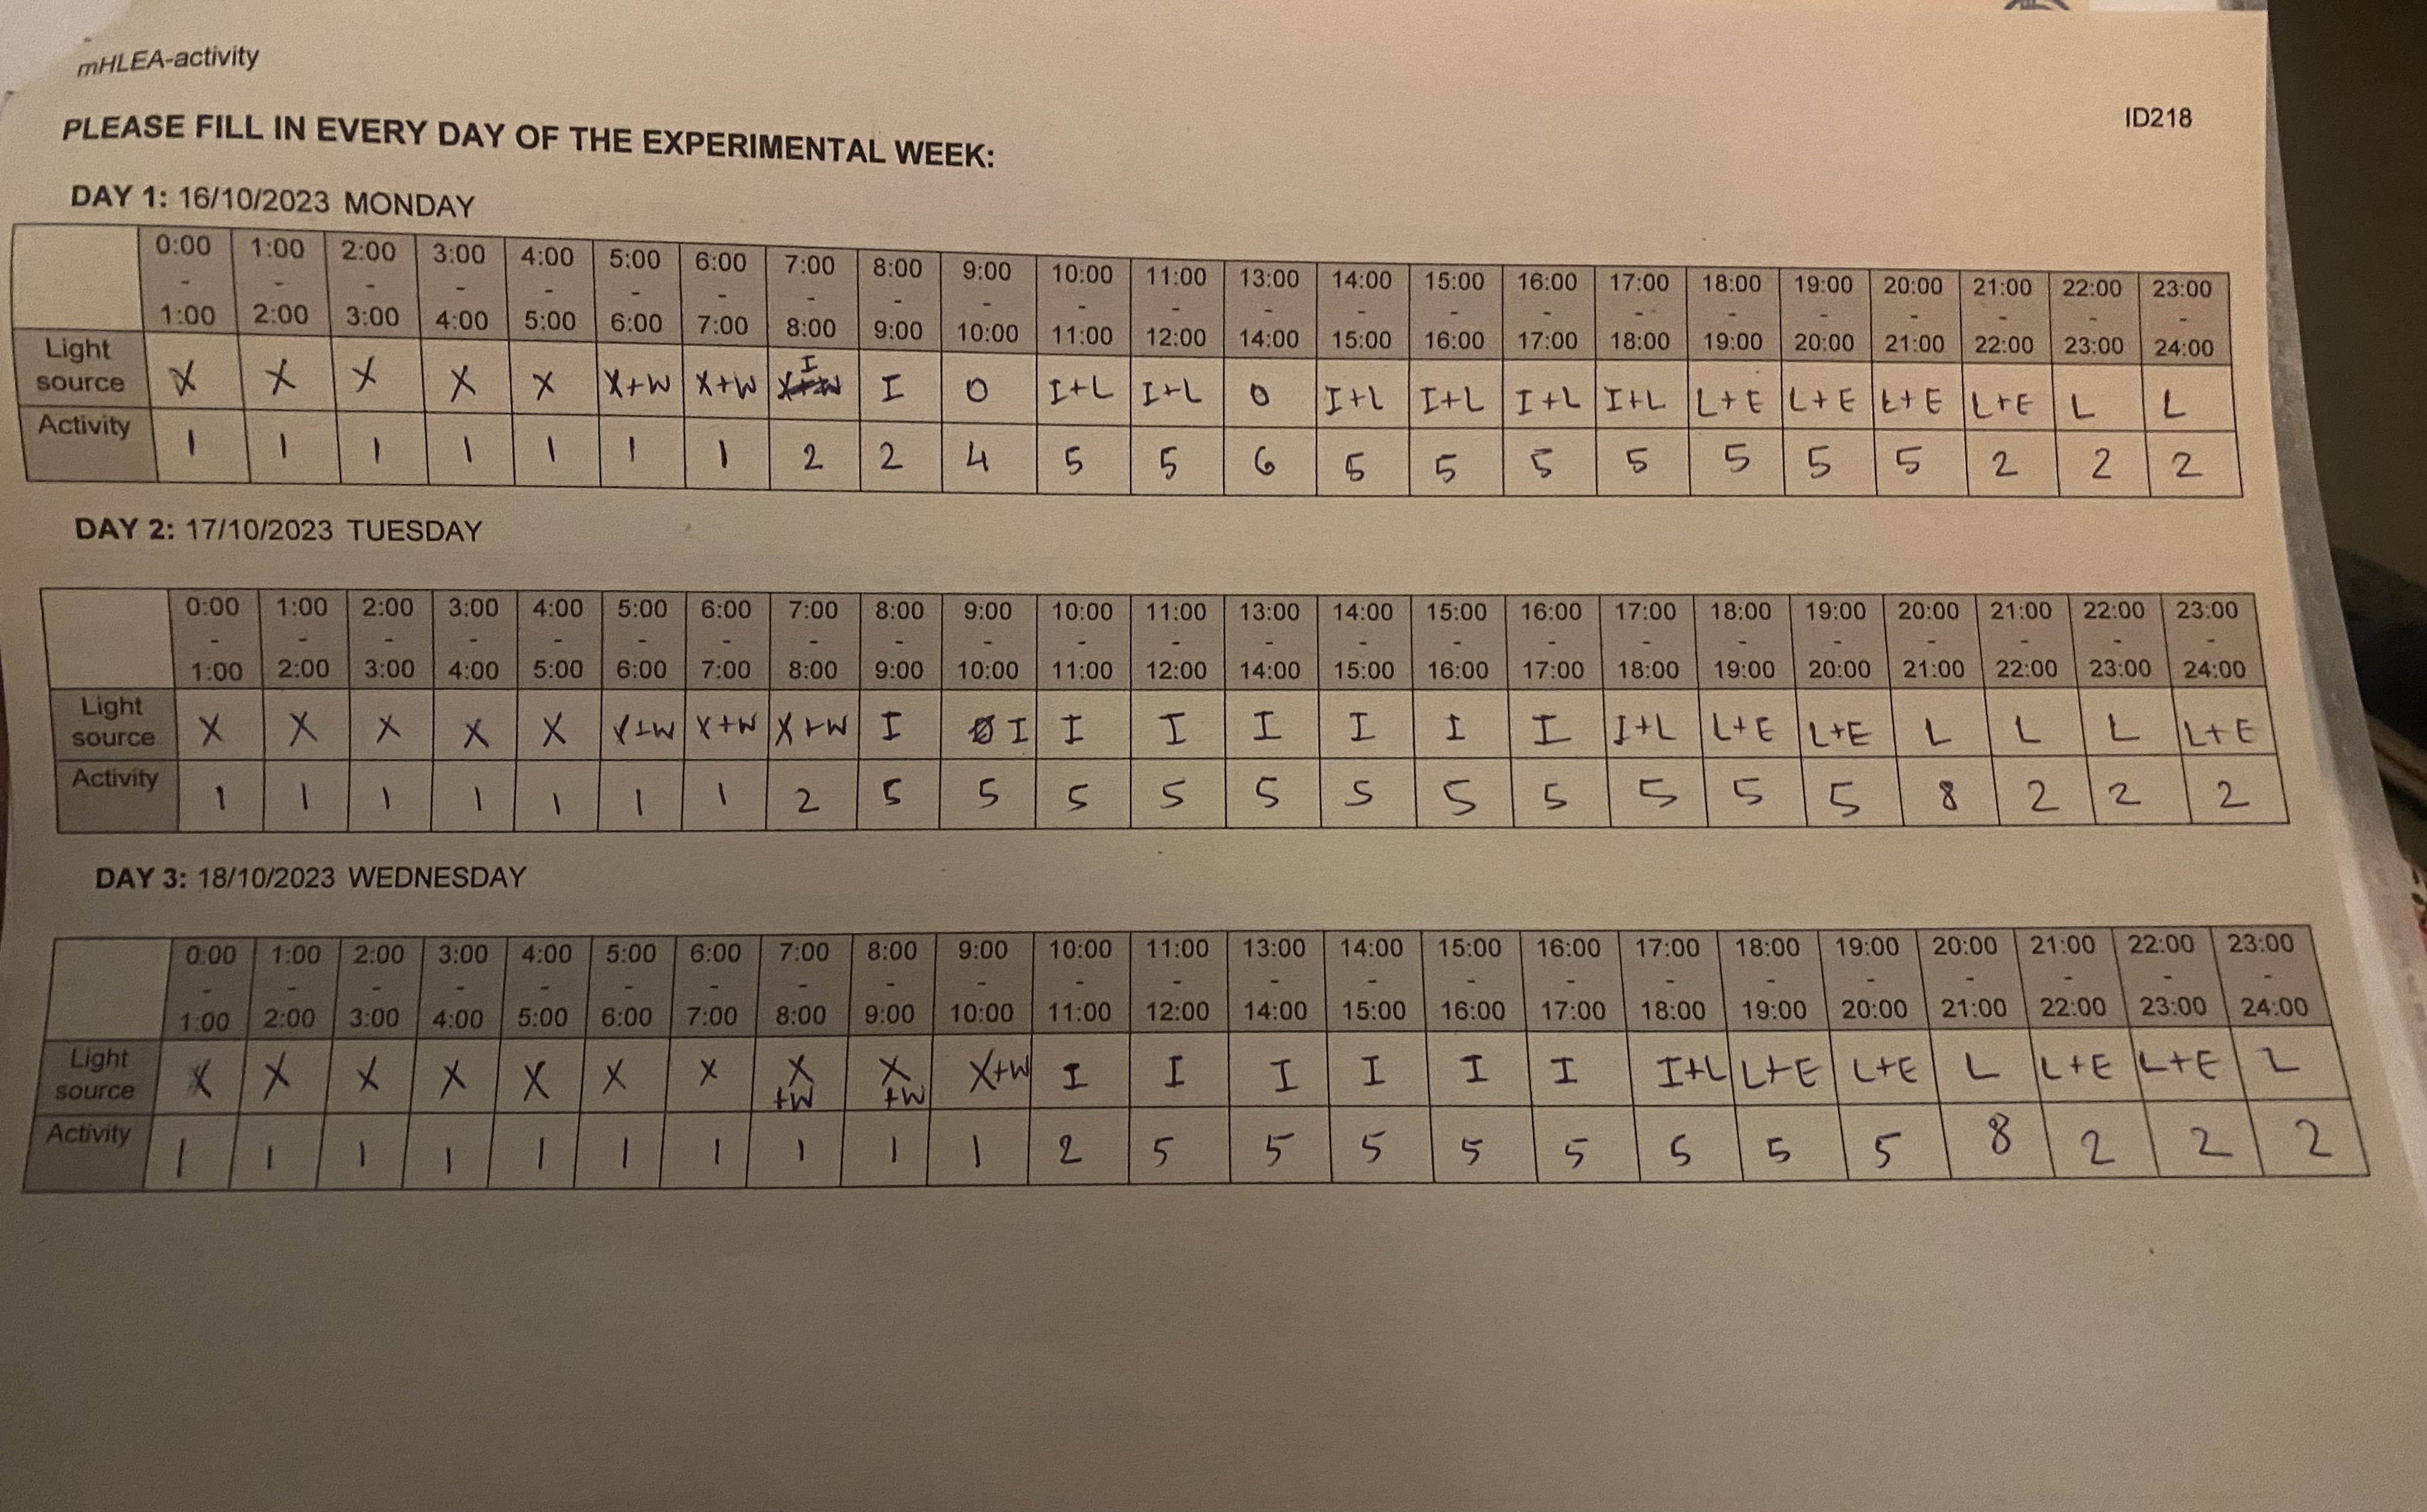 mHLEA-activity
ID218
PLEASE FILL IN EVERY DAY OF THE EXPERIMENTAL WEEK:
DAY 1: 16/10/2023 MONDAY
0:00 - 1:00 1:00 - 2:00 2:00 - 3:00 3:00 - 4:00 4:00 - 5:00 5:00 - 6:00 6:00 - 7:00 7:00 - 8:00 8:00 - 9:00 9:00 - 10:00 10:00 - 11:00 11:00 - 12:00 13:00 - 14:00 14:00 - 15:00 15:00 - 16:00 16:00 - 17:00 17:00 - 18:00 18:00 - 19:00 19:00 - 20:00 20:00 - 21:00 21:00 - 22:00 22:00 - 23:00 23:00 - 24:00
Light source X X X X X X+W X+W I I O I+L I+L O I+L I+L I+L I+L L+E L+E L+E L+E L L
Activity 1 1 1 1 1 1 1 2 2 4 5 5 6 5 5 5 5 5 5 5 2 2 2
DAY 2: 17/10/2023 TUESDAY
0:00 - 1:00 1:00 - 2:00 2:00 - 3:00 3:00 - 4:00 4:00 - 5:00 5:00 - 6:00 6:00 - 7:00 7:00 - 8:00 8:00 - 9:00 9:00 - 10:00 10:00 - 11:00 11:00 - 12:00 13:00 - 14:00 14:00 - 15:00 15:00 - 16:00 16:00 - 17:00 17:00 - 18:00 18:00 - 19:00 19:00 - 20:00 20:00 - 21:00 21:00 - 22:00 22:00 - 23:00 23:00 - 24:00
Light source X X X X X X+W X+W X+W I I I I I I I I I+L L+E L+E L L L L+E
Activity 1 1 1 1 1 1 1 2 5 5 5 5 5 5 5 5 5 5 5 8 2 2 2
DAY 3: 18/10/2023 WEDNESDAY
0:00 - 1:00 1:00 - 2:00 2:00 - 3:00 3:00 - 4:00 4:00 - 5:00 5:00 - 6:00 6:00 - 7:00 7:00 - 8:00 8:00 - 9:00 9:00 - 10:00 10:00 - 11:00 11:00 - 12:00 13:00 - 14:00 14:00 - 15:00 15:00 - 16:00 16:00 - 17:00 17:00 - 18:00 18:00 - 19:00 19:00 - 20:00 20:00 - 21:00 21:00 - 22:00 22:00 - 23:00 23:00 - 24:00
Light source X X X X X X X X+W X+W X+W I I I I I I I+L L+E L+E L L+E L+E L
Activity 1 1 1 1 1 1 1 1 1 1 2 5 5 5 5 5 5 5 5 8 2 2 2